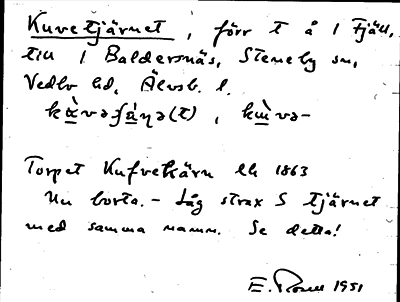 Kuvetjärnet, förr t å 1 Fjäll,
till 1 Baldersnäs, Steneby sn,
Vedbo hd, Älvsb. l.
Torpet Kufvekärn lk 1863
Nu borta. - Låg strax S tjärnet
med samma namn. Se detta!
E. 1951